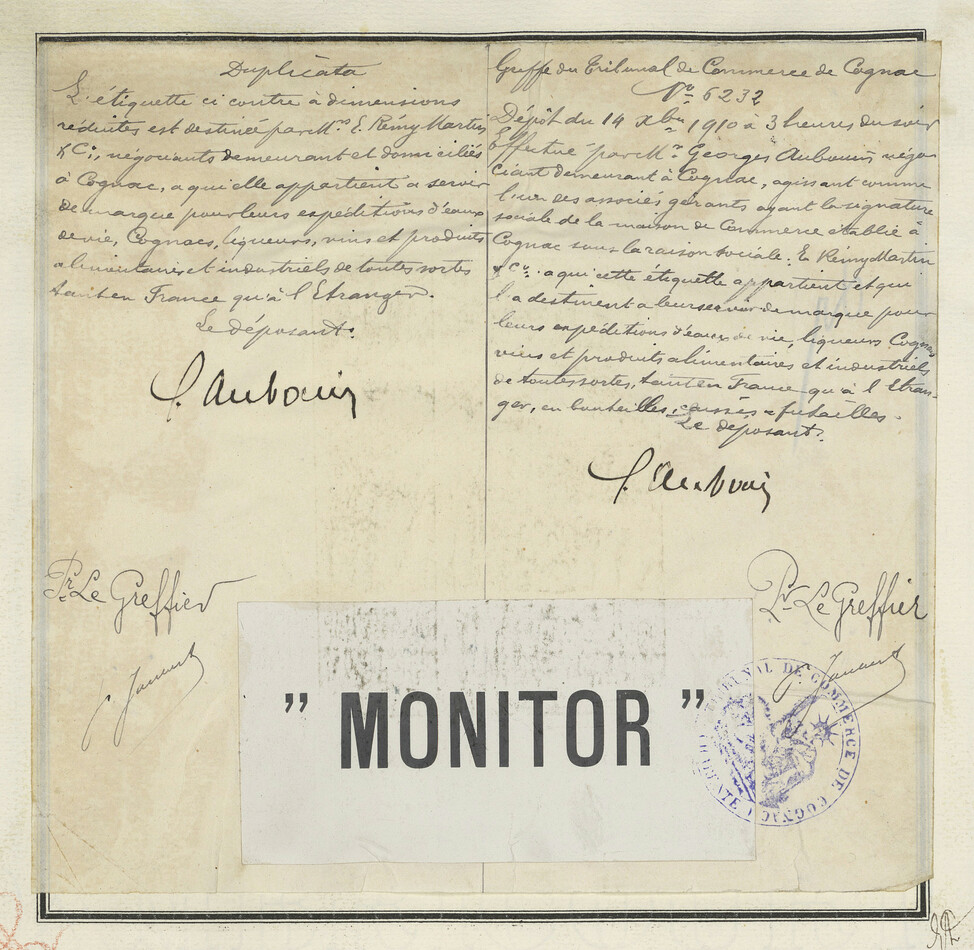 Duplicata
L'étiquette ci contre à dimensions
réduites est destinée par Mrs E. Rémy Martin
& Cie, négociants demeurant et domiciliés
à Cognac, a qui elle appartient a servir
de marque pour leurs expéditions d'eaux
de vie, Cognacs, liqueurs, vins et produits
alimentaires et industriels de toutes sortes
tant en France qu'à l'Etranger.
Le déposant:
G. Aubouin
Pr Le Greffier
Greffe du Tribunal de Commerce de Cognac
No 6232
Dépôt du 14 Xbre 1910 à 3 heures du soir
Effectué par Mr Georges Aubouin, négo
ciant demeurant à Cognac, agissant comme
l'un des associés, gérants ayant la signature
sociale de la maison de Commerce établie à
Cognac sous la raison sociale: E. Rémy Martin
& Cie. a qui cette étiquette appartient et qui
l'a destinent a leur servir de marque pour
leurs expéditions d'eaux de vie, liqueurs, Cognacs
vins et produits alimentaires et industriels
de toutes sortes, tant en France qu'à l'Etran-
ger, en bouteilles, caisses & futailles.
Le déposant:
G. Aubouin
Pr Le Greffier
" MONITOR "
TRIBUNAL DE COMMERCE DE COGNAC